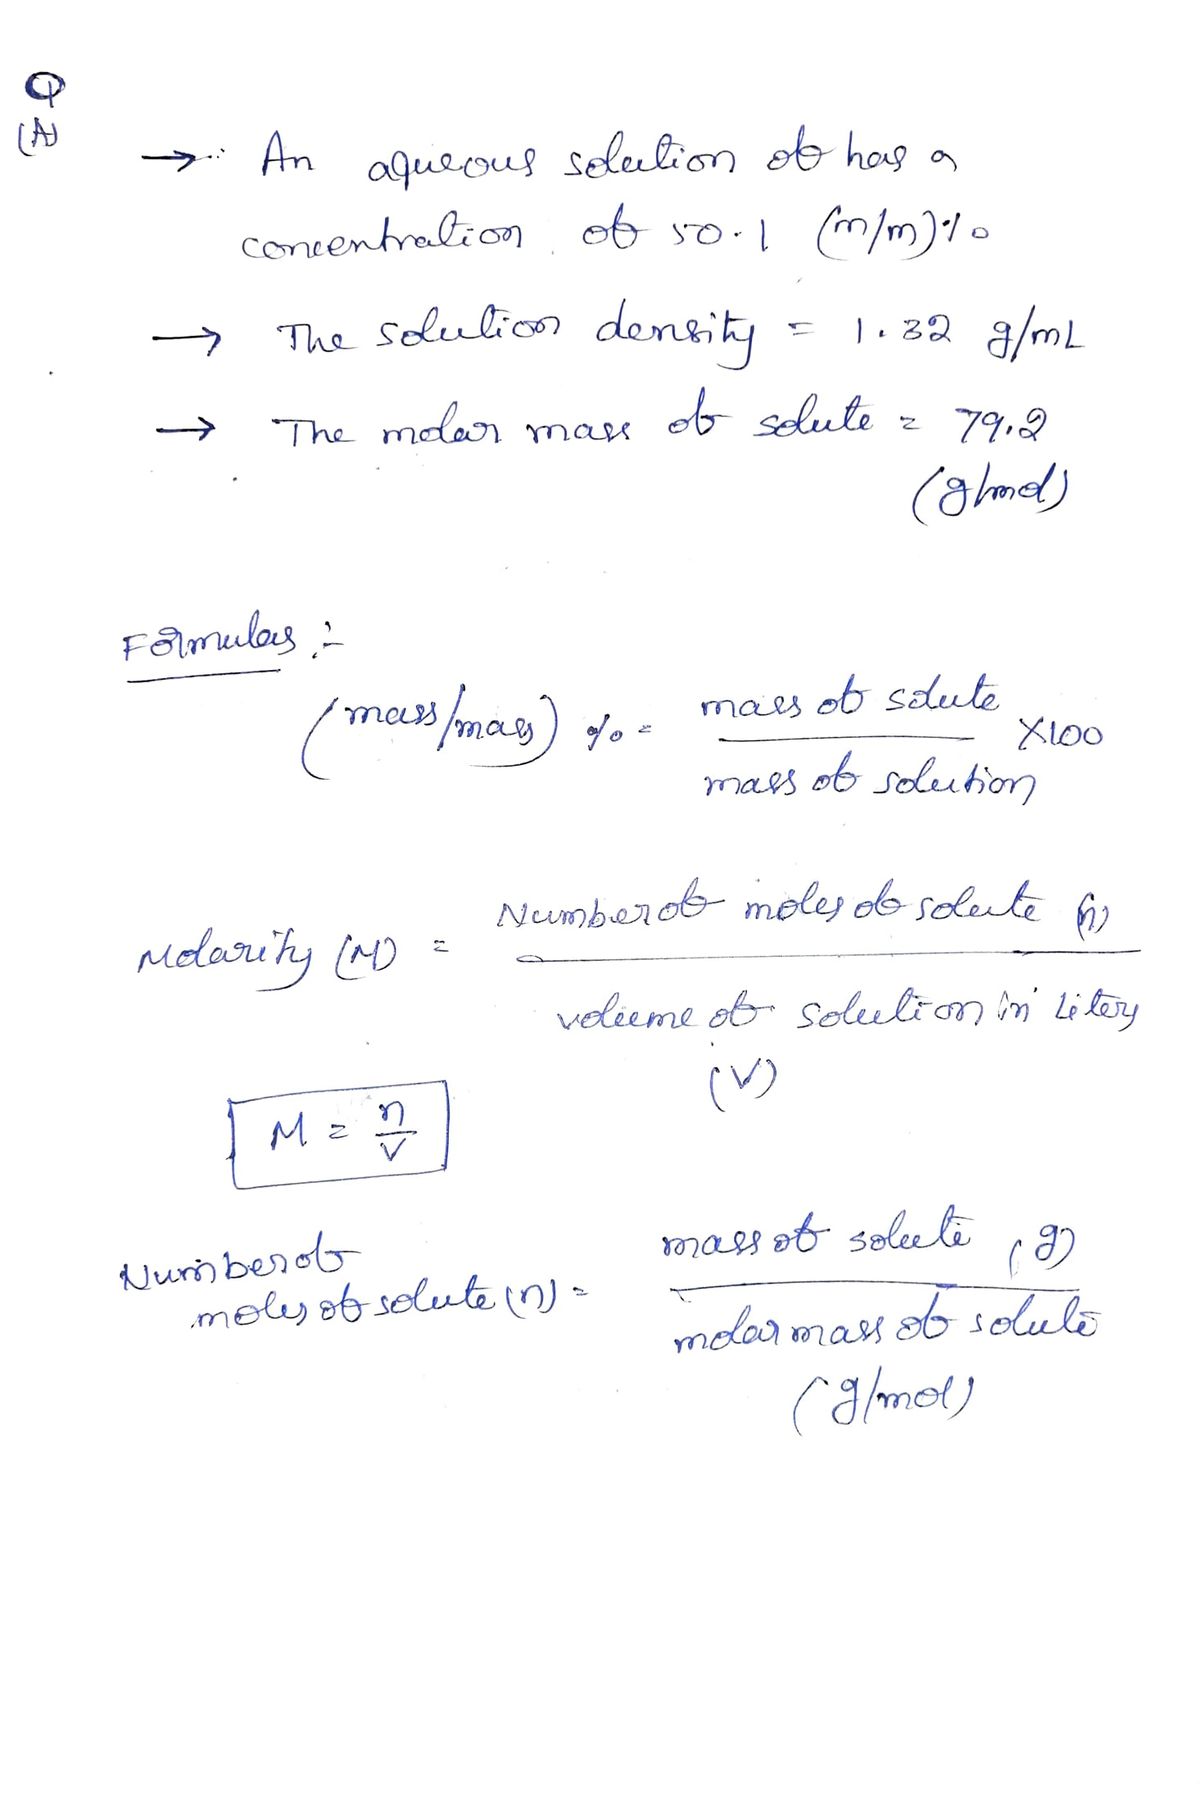 Q
(A)
→ An aqueous solution of has a
concentration of 50.1 (m/m)%
→ The solution density = 1.32 g/mL
→ The molar mass of solute = 79.2
(g/mol)
Formulas :-
(mass/mass) % = mass of solute / mass of solution X100
Molarity (M) = Number of moles of solute (n) / volume of solution in Liters (V)
M = n/V
Number of
moles of solute (n) = mass of solute (g) / molar mass of solute (g/mol)